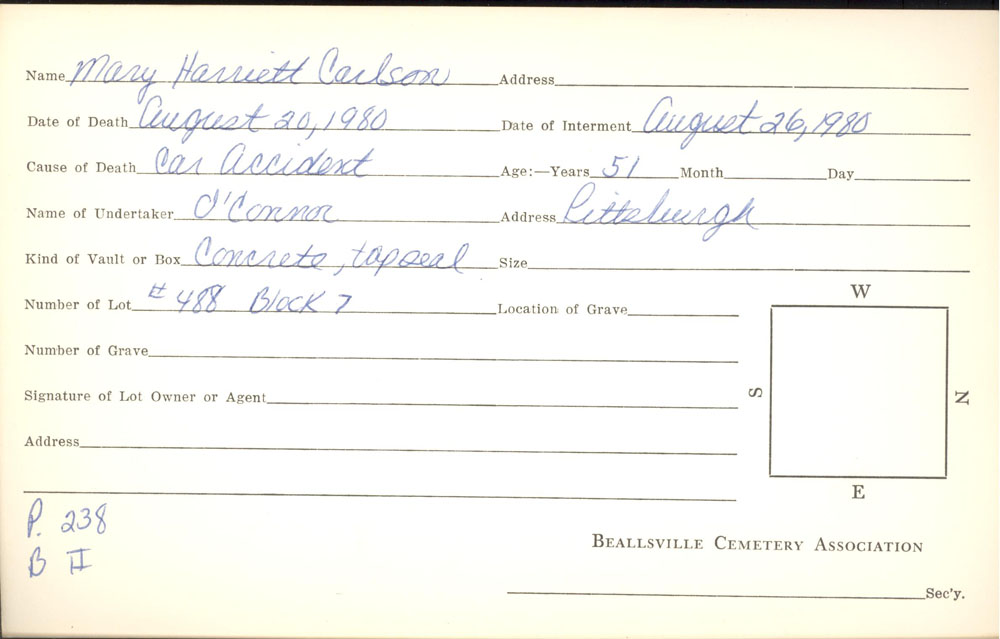 Name Mary Harriett Carlson Address
Date of Death August 20, 1980 Date of Interment August 26, 1980
Cause of Death Car Accident Age:—Years 51 Month Day
Name of Undertaker O'Connor Address Pittsburgh
Kind of Vault or Box Concrete, topseal Size
Number of Lot # 488 Block 7 Location of Grave
W
Number of Grave
Signature of Lot Owner or Agent
S
N
Address
E
P. 238
B II
BEALLSVILLE CEMETERY ASSOCIATION
Sec'y.